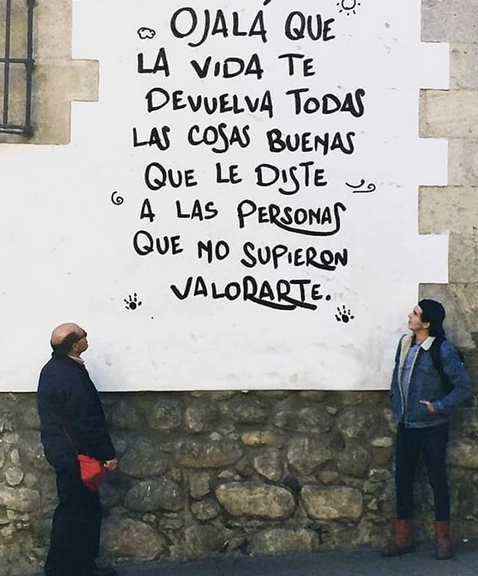 OJALÁ QUE
LA VIDA TE
DEVUELVA TODAS
LAS COSAS BUENAS
QUE LE DISTE
A LAS PERSONAS
QUE NO SUPIERON
VALORARTE.